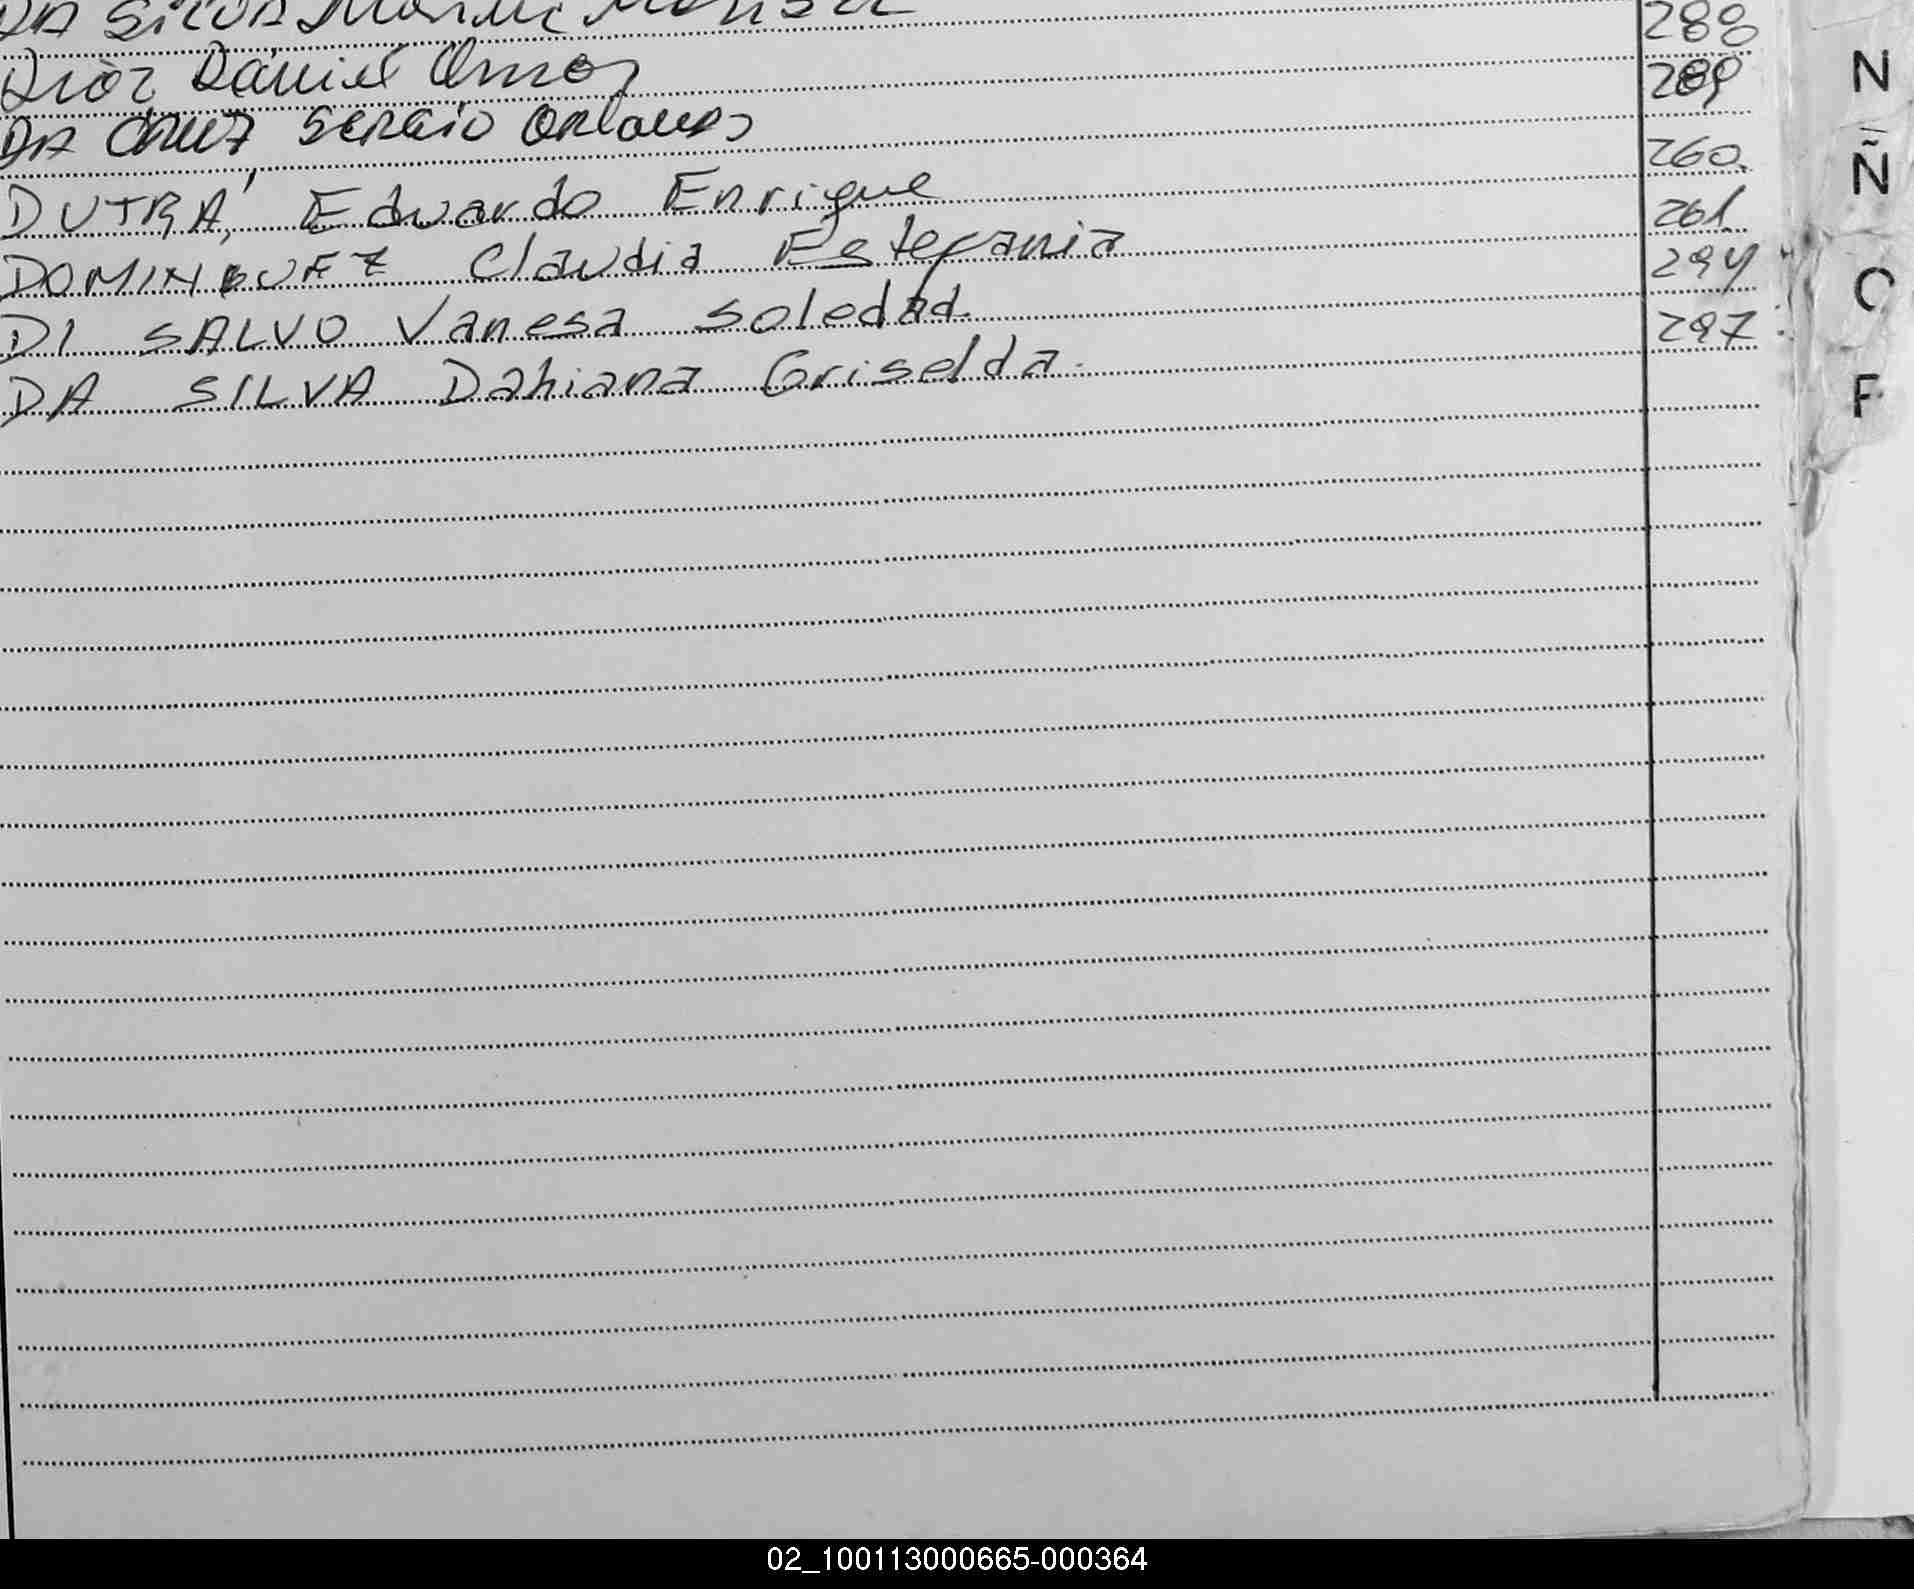 DA SILVA
Diaz Daniel Omar 288
DA CRUZ SERGIO ORLANDO 289
DUTRA, Eduardo Enrique 260.
DOMINGUEZ Claudia Estefania 261.
DI SALVO Vanesa Soledad. 294
DA SILVA Dahiana Griselda. 297
N
Ñ
O
P
02_100113000665-000364